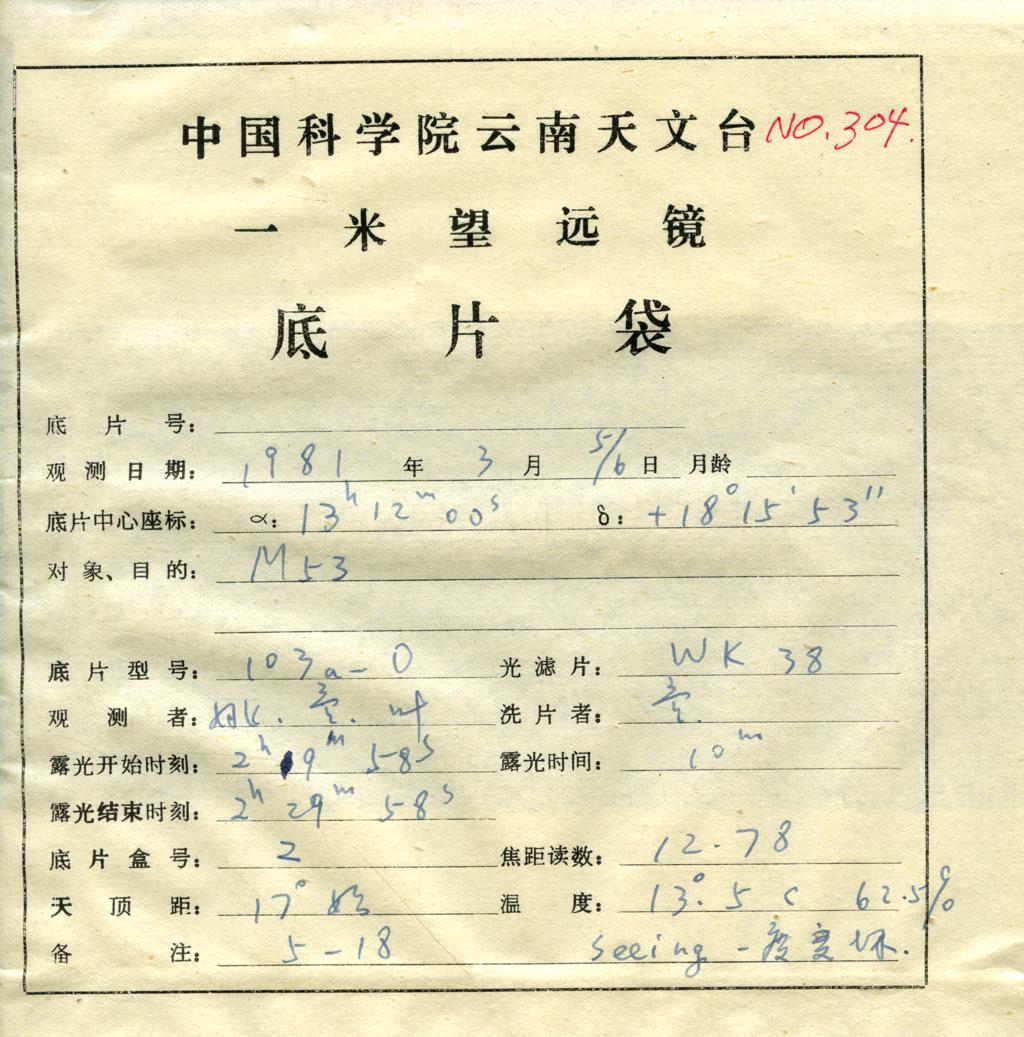 中国科学院云南天文台 NO.304.
一米望远镜
底片袋
底片号:
观测日期: 1981年3月5/6日 月龄
底片中心座标: α: 13h 12m 00s δ: +18° 15′ 53″
对象、目的: M53
底片型号: 103a-O 光滤片: WK 38
观测者: 洗片者:
露光开始时刻: 2h 19m 58s 露光时间: 10m
露光结束时刻: 2h 29m 58s
底片盒号: 2 焦距读数: 12.78
天顶距: 17° 始 温度: 13°.5 C 62.5%
备注: 5-18 seeing 一度变坏.